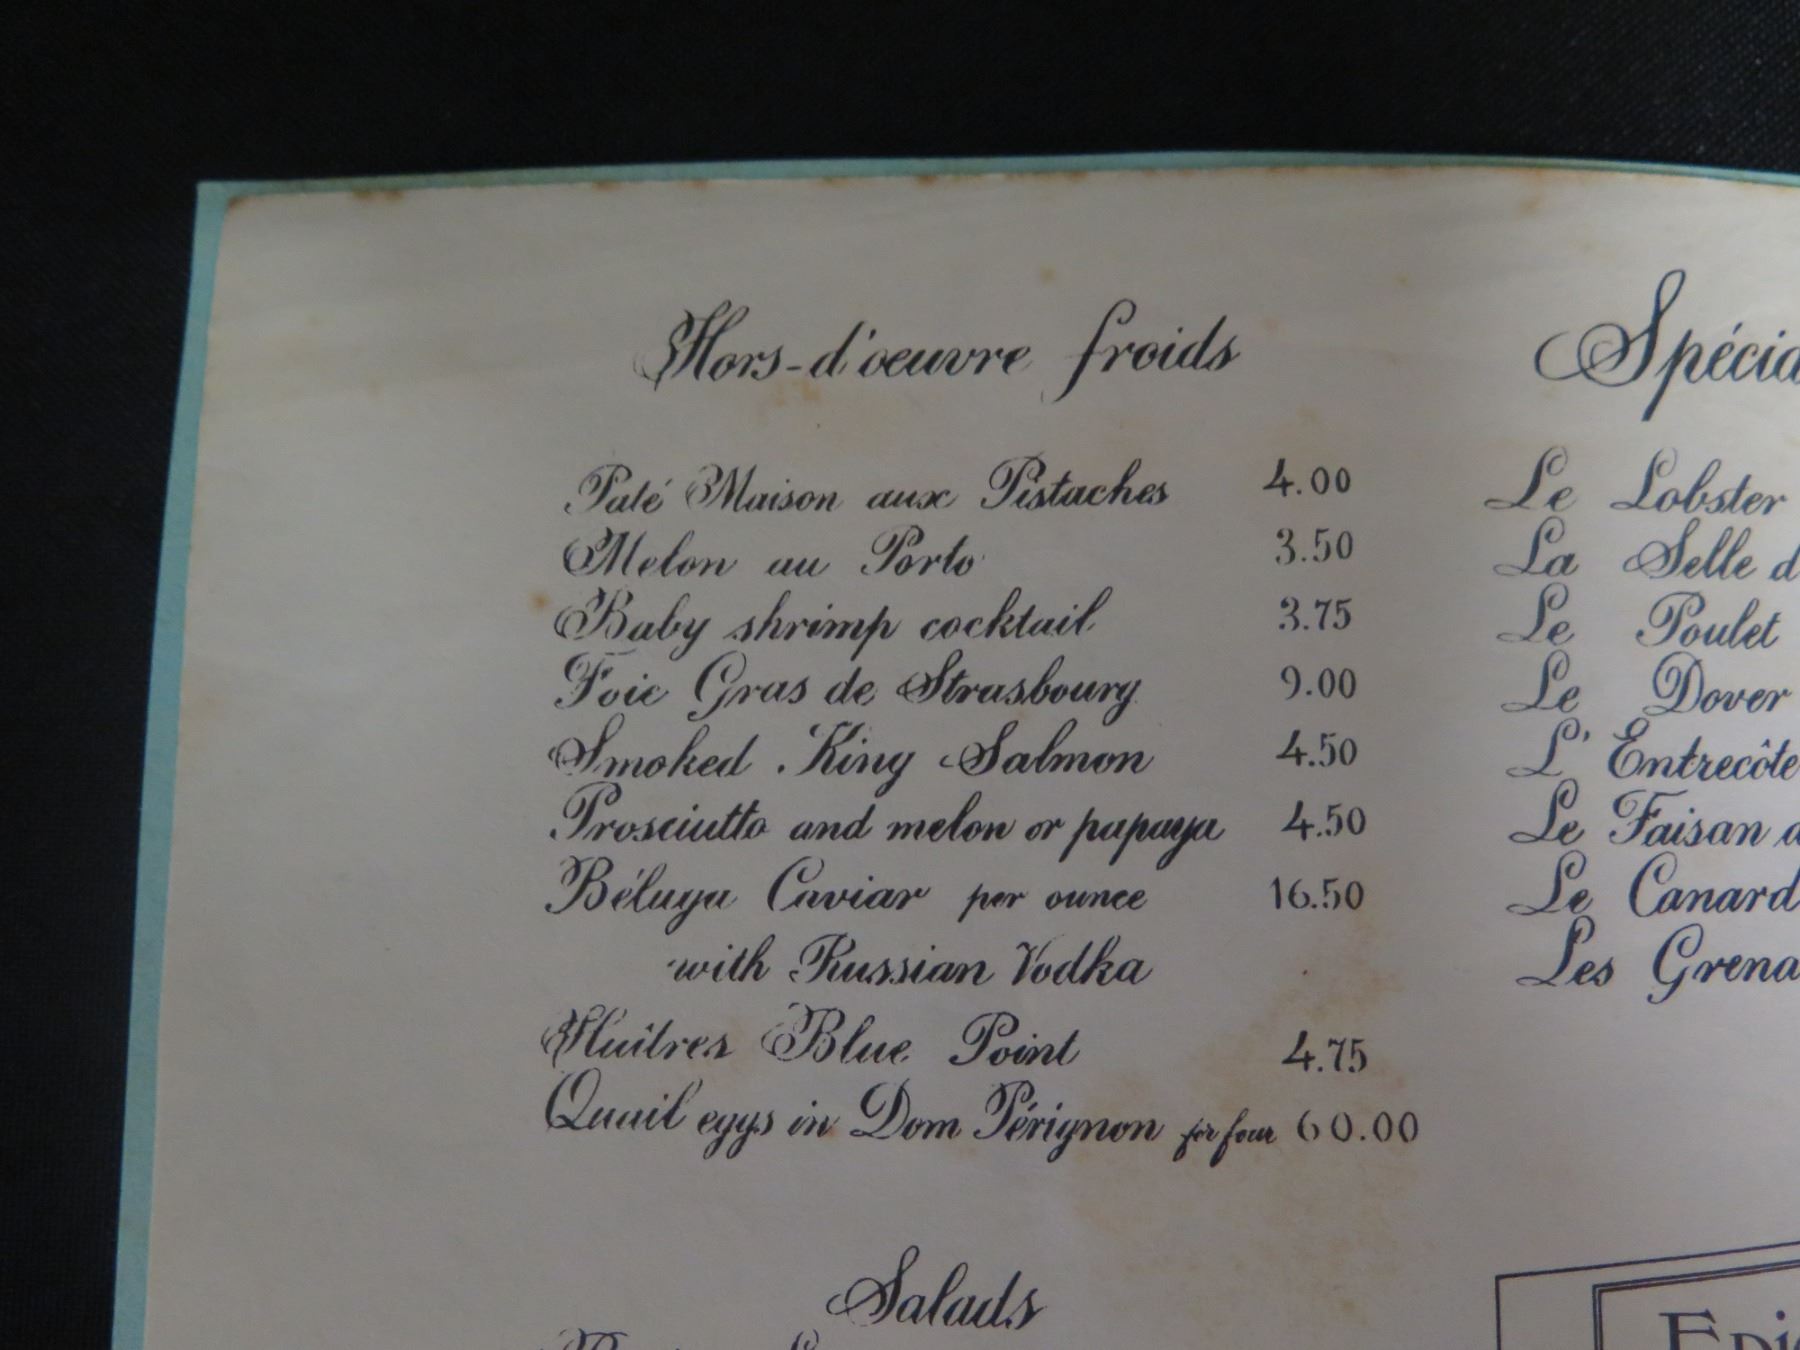 Hors-d'oeuvre froids
Paté Maison aux Pistaches 4.00
Melon au Porto 3.50
Baby shrimp cocktail 3.75
Foie Gras de Strasbourg 9.00
Smoked King Salmon 4.50
Prosciutto and melon or papaya 4.50
Béluga Caviar per ounce 16.50
with Russian Vodka
Huîtres Blue Point 4.75
Quail eggs in Dom Pérignon for four 60.00
Salads
Spécia
Le Lobster
La Selle d
Le Poulet
Le Dover
L'Entrecôte
Le Faisan
Le Canard
Les Grena